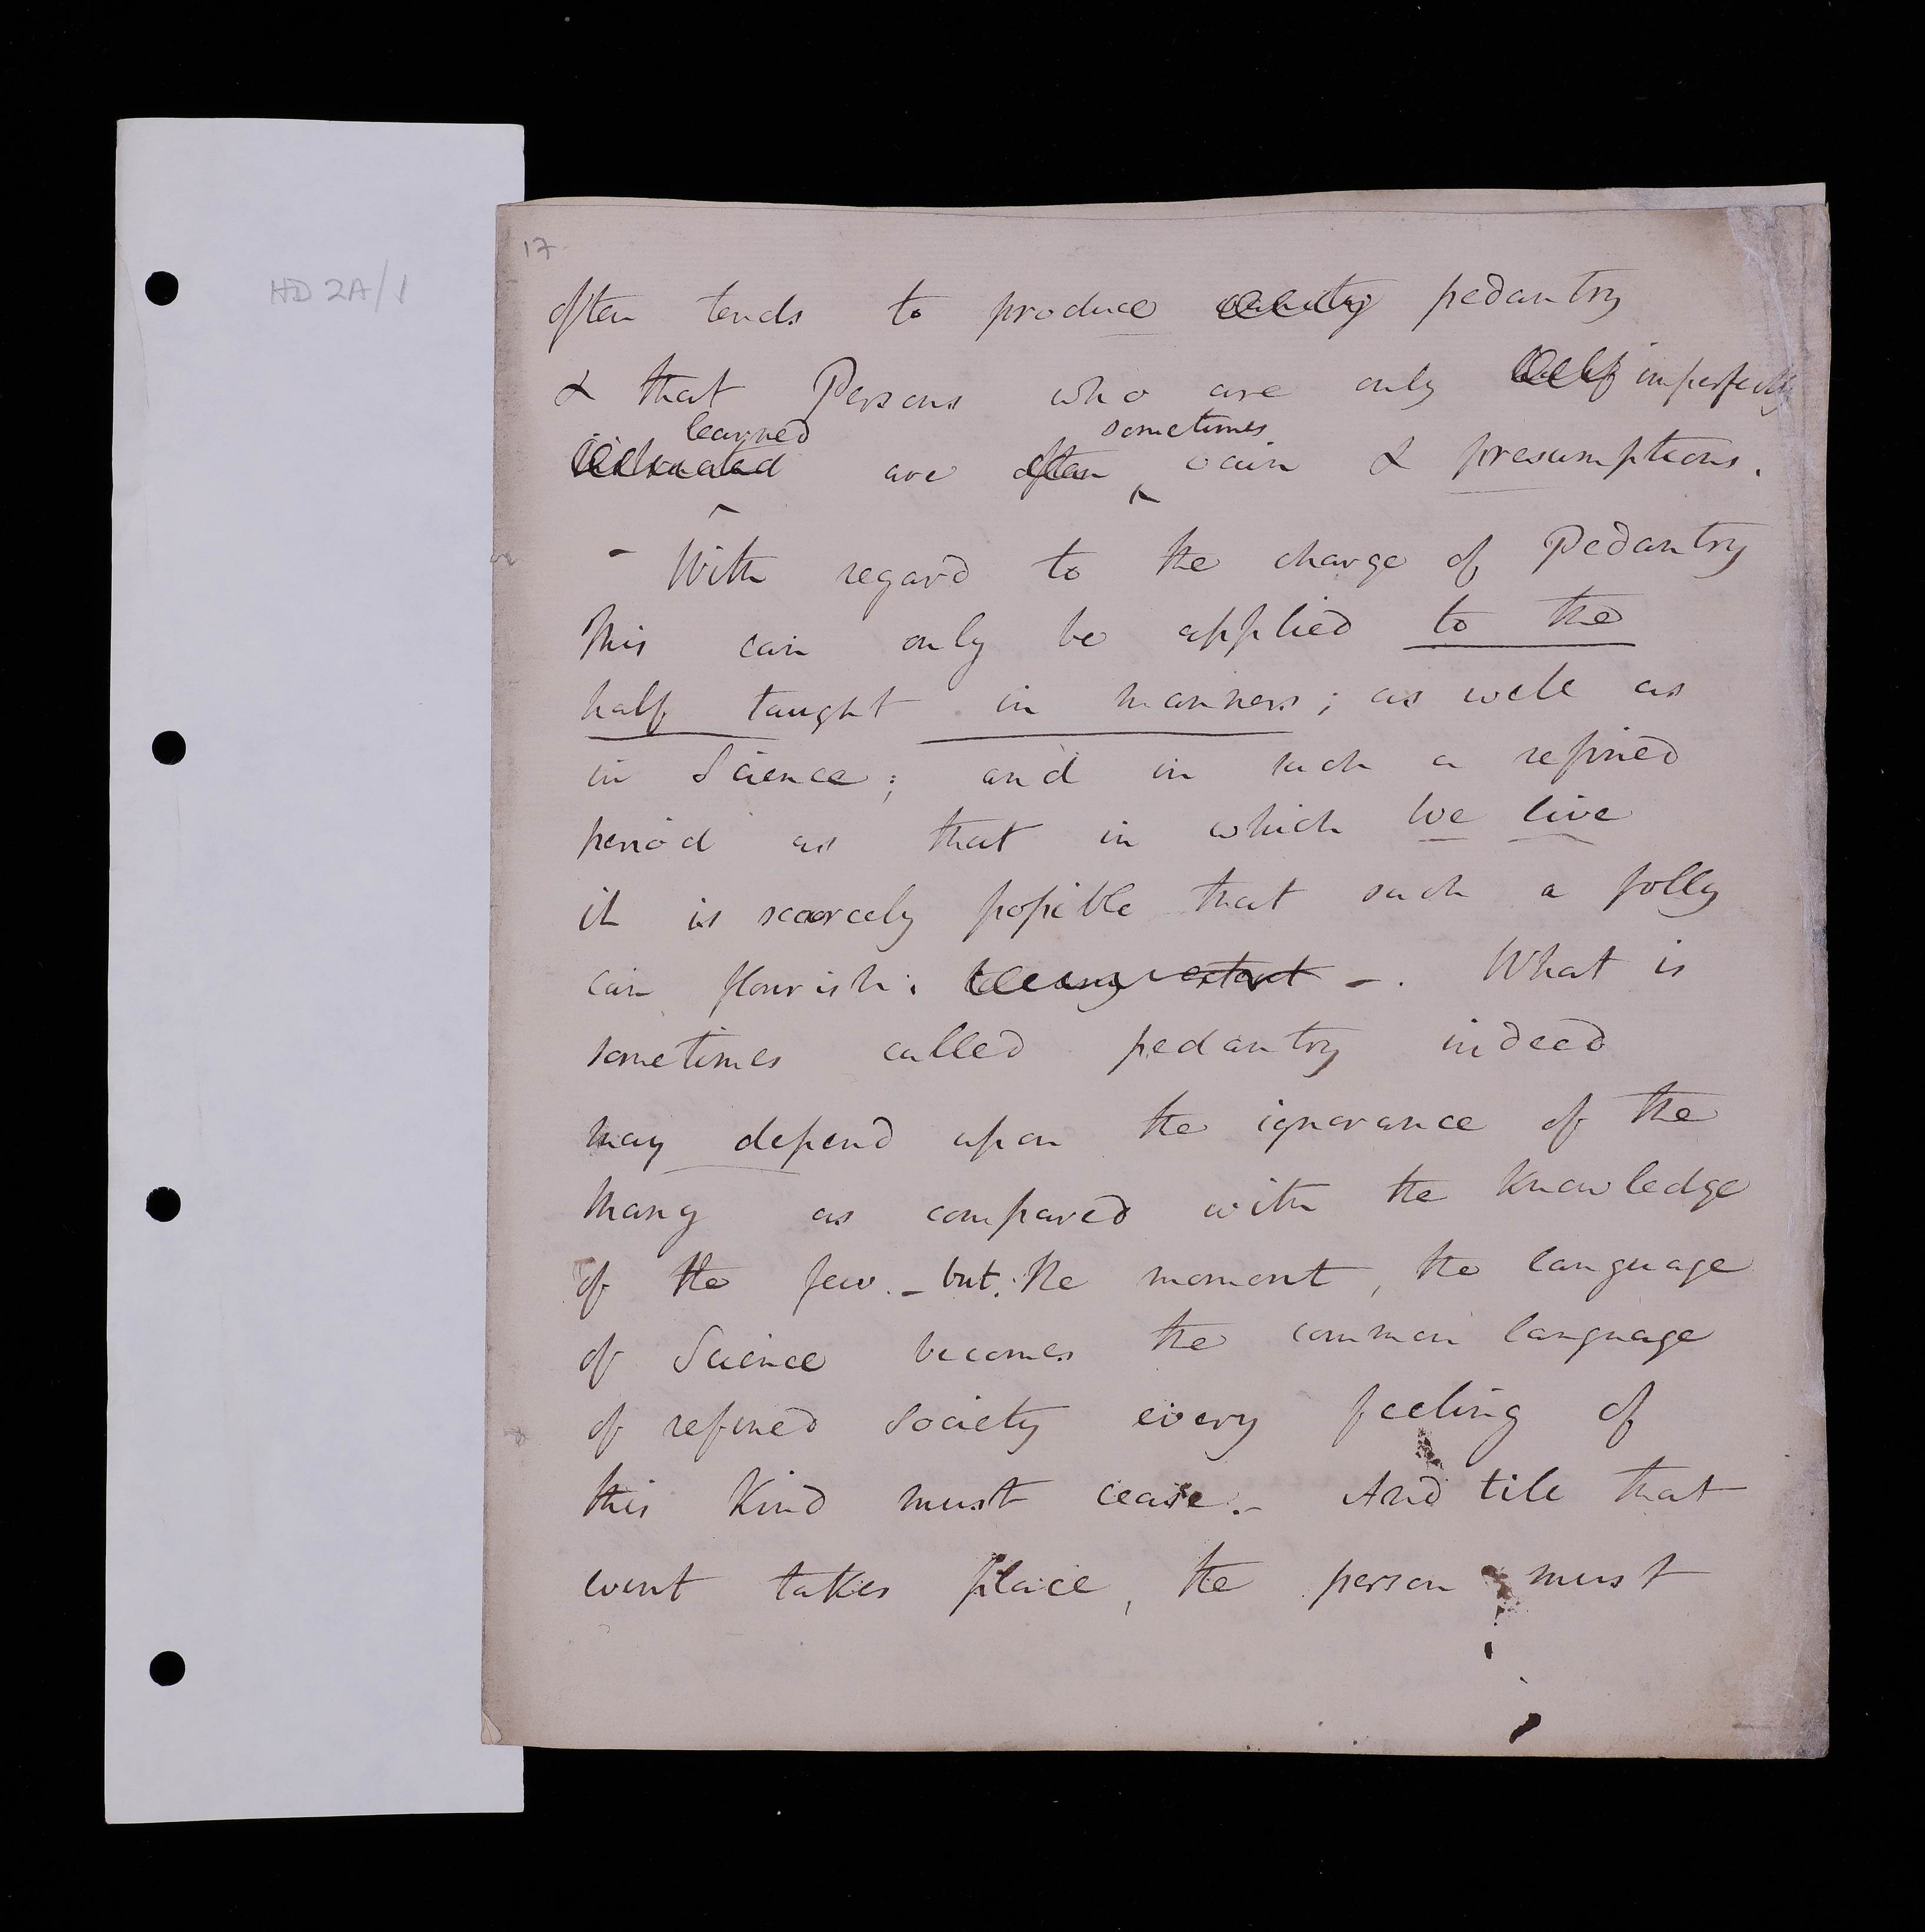 HD 2A/1
17
often tends to produce vanity pedantry
& that Persons who are only half imperfectly
learned sometimes
are often vain & presumptions.
- With regard to the charge of Pedantry
this can only be applied to the
half taught in manners; as well as
in Science; and in such a refined
period as that in which we live
it is scarcely possible that such a folly
can flourish: to any extent -. What is
sometimes called pedantry indeed
may depend upon the ignorance of the
many as compared with the knowledge
of the few. - but. the moment, the language
of Science becomes the common language
of refined Society every feeling of
this Kind must cease. - And till that
event takes place, the person must